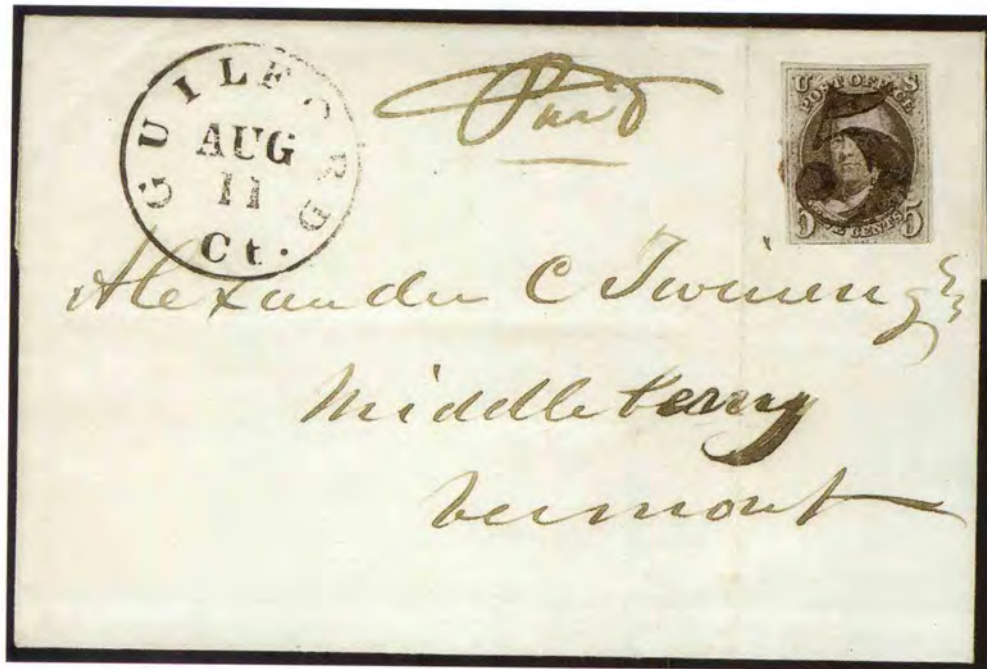 GUILFORD
AUG
11
Ct.
Paid
U S
POST OFFICE
5
5 FIVE CENTS 5
Alexander C Twining
Middlebery
Vermont